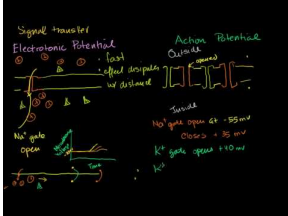 Signal transfer
Electrotonic Potential
• fast
• effect dissipates
w/ distance
Na⁺ gate
open
Action Potential
Outside
opened
Inside
Na⁺ gate open at -55mv
Closes + 35 mv
K⁺ gate opens +40 mv
K⁺